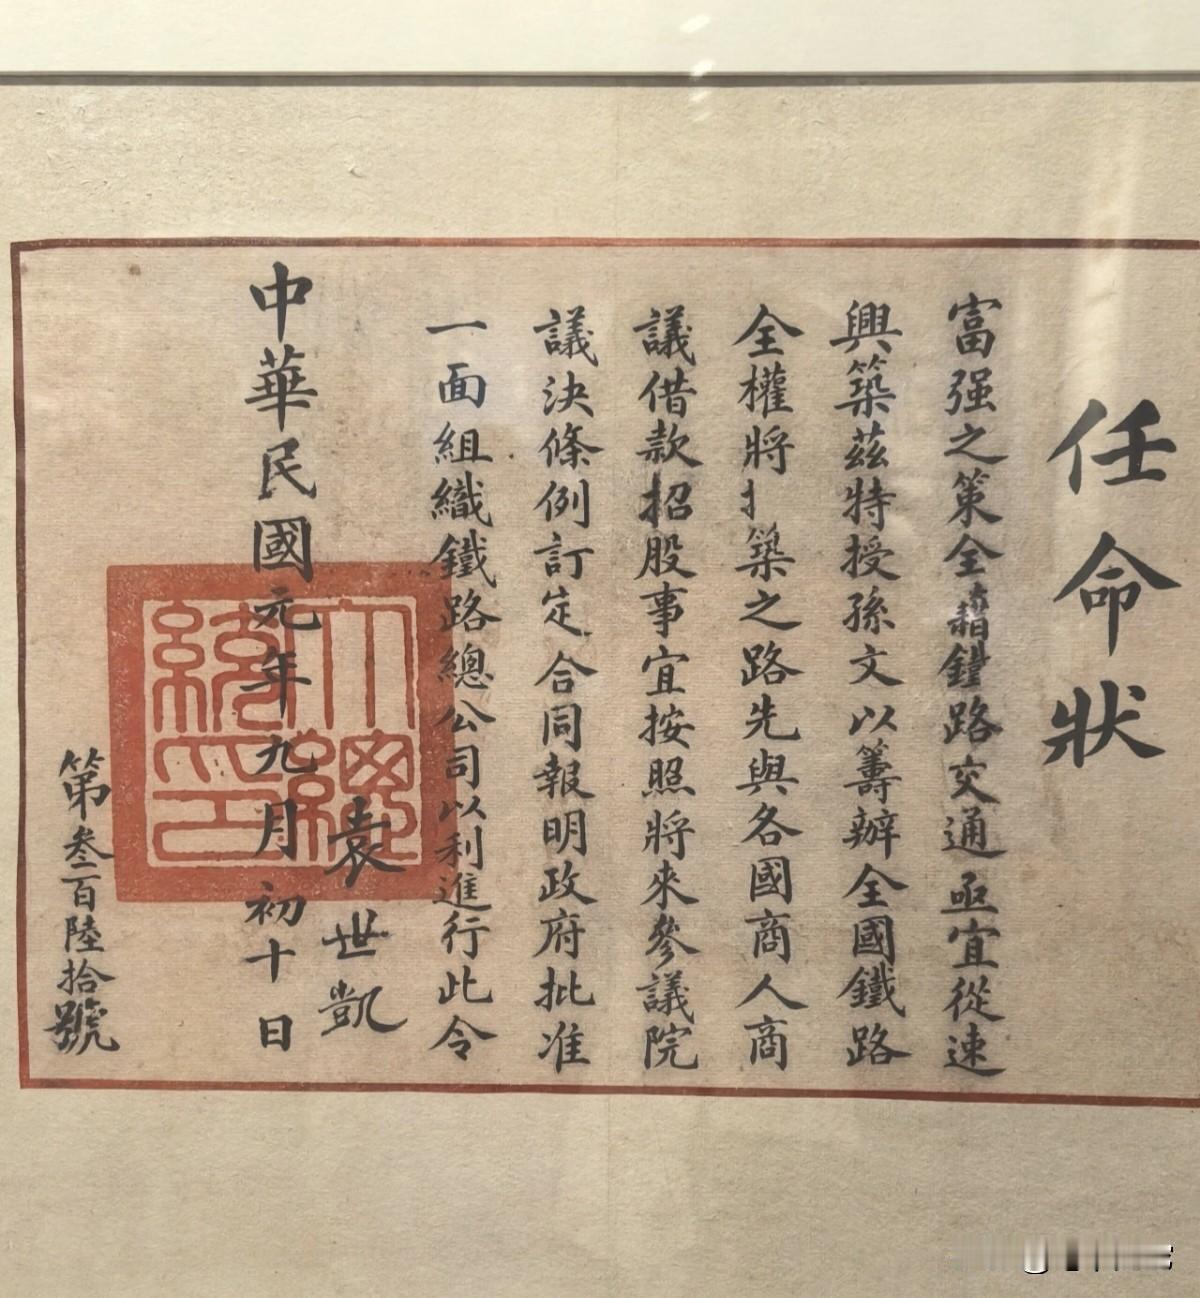 任命狀
富强之策全藉鐵路交通亟宜從速
興築茲特授孫文以籌辦全國鐵路
全權將築之路先與各國商人商
議借款招股事宜按照將來參議院
議決條例訂定合同報明政府批准
一面組織鐵路總公司以利進行此令
袁世凱
中華民國元年九月初十日
大總統印
第叁百陸拾號